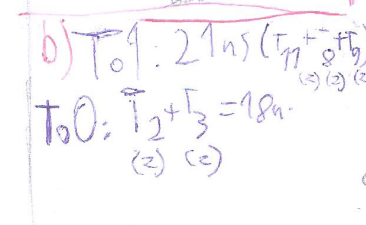 b) To1: 21ns (T11+T8+T9
(z) (z) (z
To0: T2+T3=18n.
(z) (z)